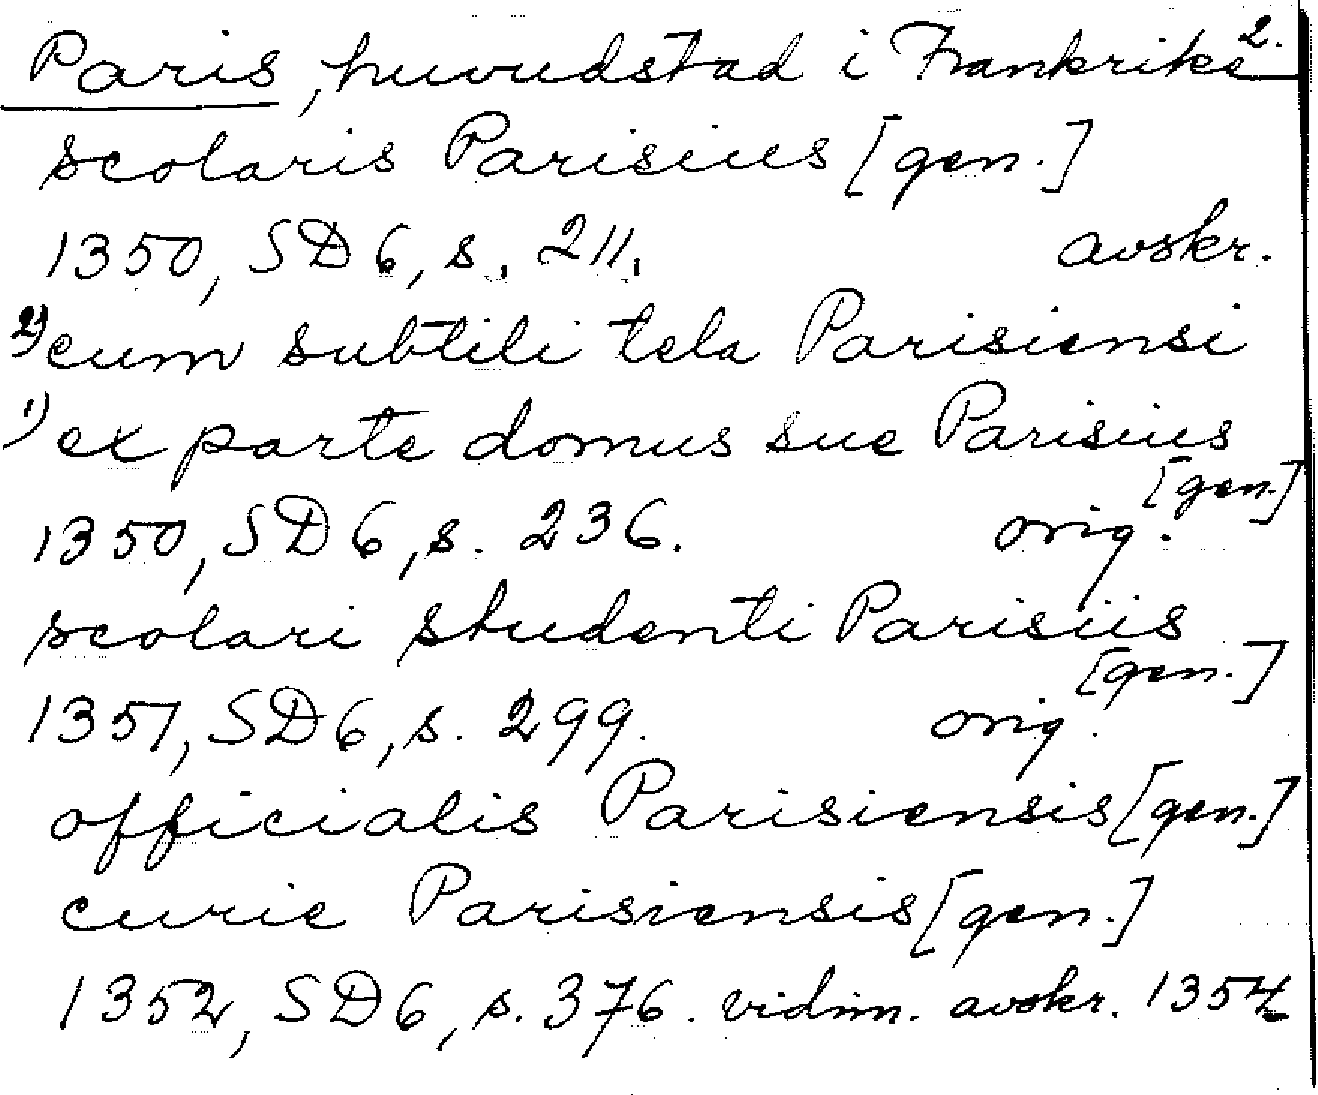 Paris, huvudstad i Frankrike 2.
scolaris Parisius [gen.]
1350, SD 6, s. 211. avskr.
2) cum subtili tela Parisiensi
1) ex parte domus sue Parisius [gen.]
1350, SD 6, s. 236. orig.
scolari studenti Parisiis [gen.]
1351, SD 6, s. 299. orig.
officialis Parisiensis [gen.]
curie Parisiensis [gen.]
1352, SD 6, s. 376. vidim. avskr. 1354